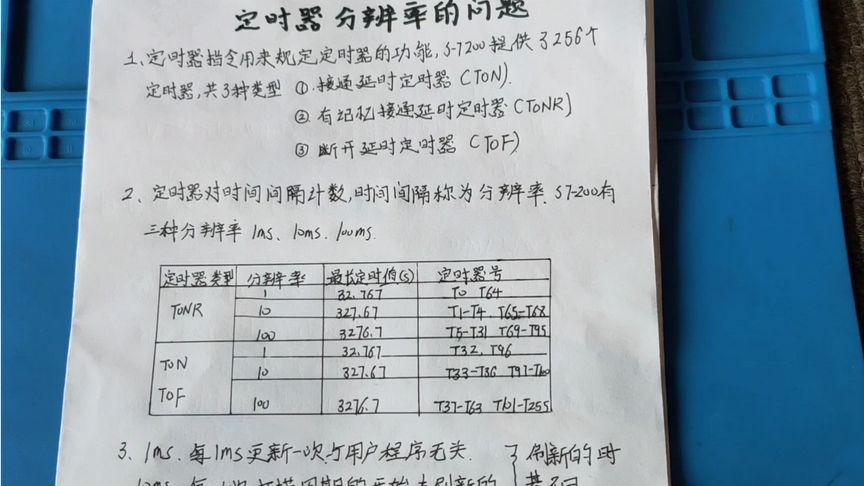 定时器分辨率的问题
1、定时器指令用来规定定时器的功能,S-7200提供了256个
定时器,共3种类型 ①.接通延时定时器 (TON).
② 有记忆接通延时定时器 (TONR)
③ 断开延时定时器 (TOF)
2、定时器对时间间隔计数,时间间隔称为分辨率. S7-200有
三种分辨率 1ms、10ms、100ms.
定时器类型 分辨率 最长定时值(s) 定时器号
TONR 1 32.767 T0 T64
10 327.67 T1-T4、T65-T68
100 3276.7 T5-T31 T69-T95
TON TOF 1 32.767 T32、T96
10 327.67 T33-T36 T97-T100
100 3276.7 T37-T63 T101-T255
3、1ms.每1ms更新一次,与用户程序无关. 刷新的时